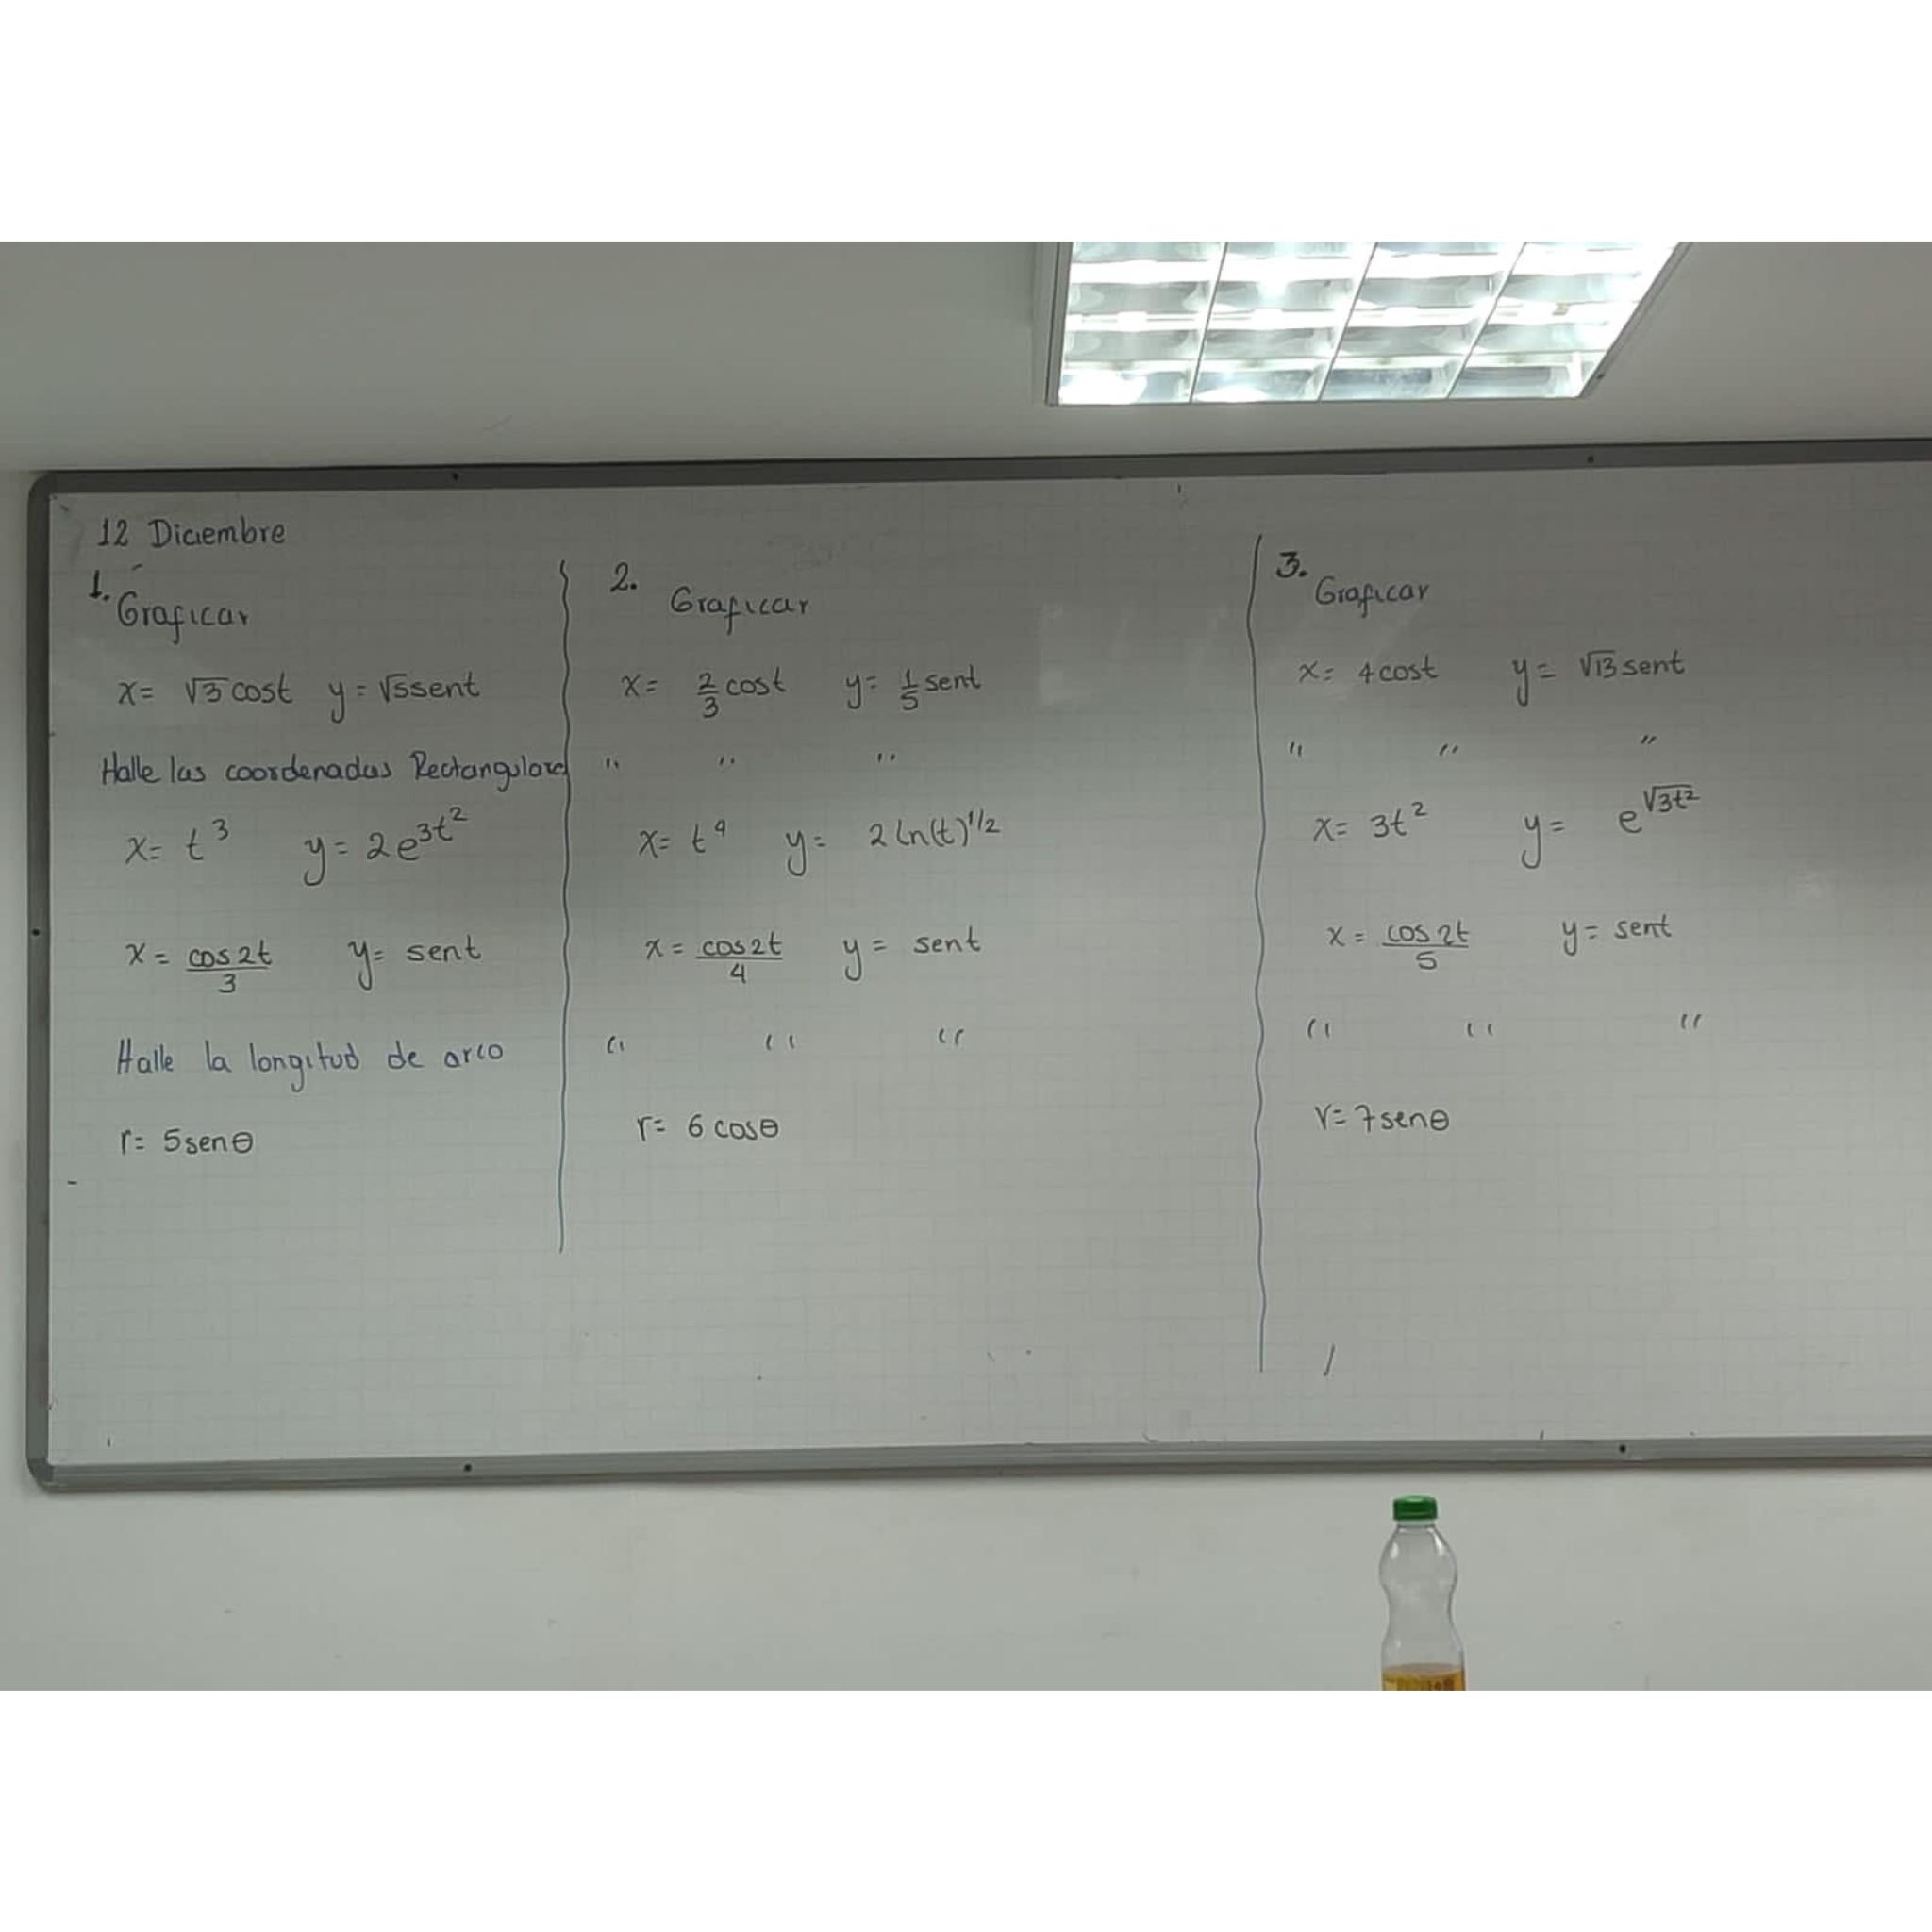 12 Diciembre
1. Graficar
x= √3 cost y=√5sent
Halle las coordenadas Rectangulares
x= t³ y=2e^3t²
x= cos2t/3 y= sent
Halle la longitud de arco
r= 5senθ
2. Graficar
x= 2/3 cost y= 1/5 sent
" " "
x= t⁴ y= 2 ln(t)^1/2
x= cos2t/4 y= sent
" " "
r= 6 cosθ
3. Graficar
x= 4cost y= √13 sent
" " "
x= 3t² y= e^√3t²
x= cos2t/5 y= sent
" " "
r= 7senθ